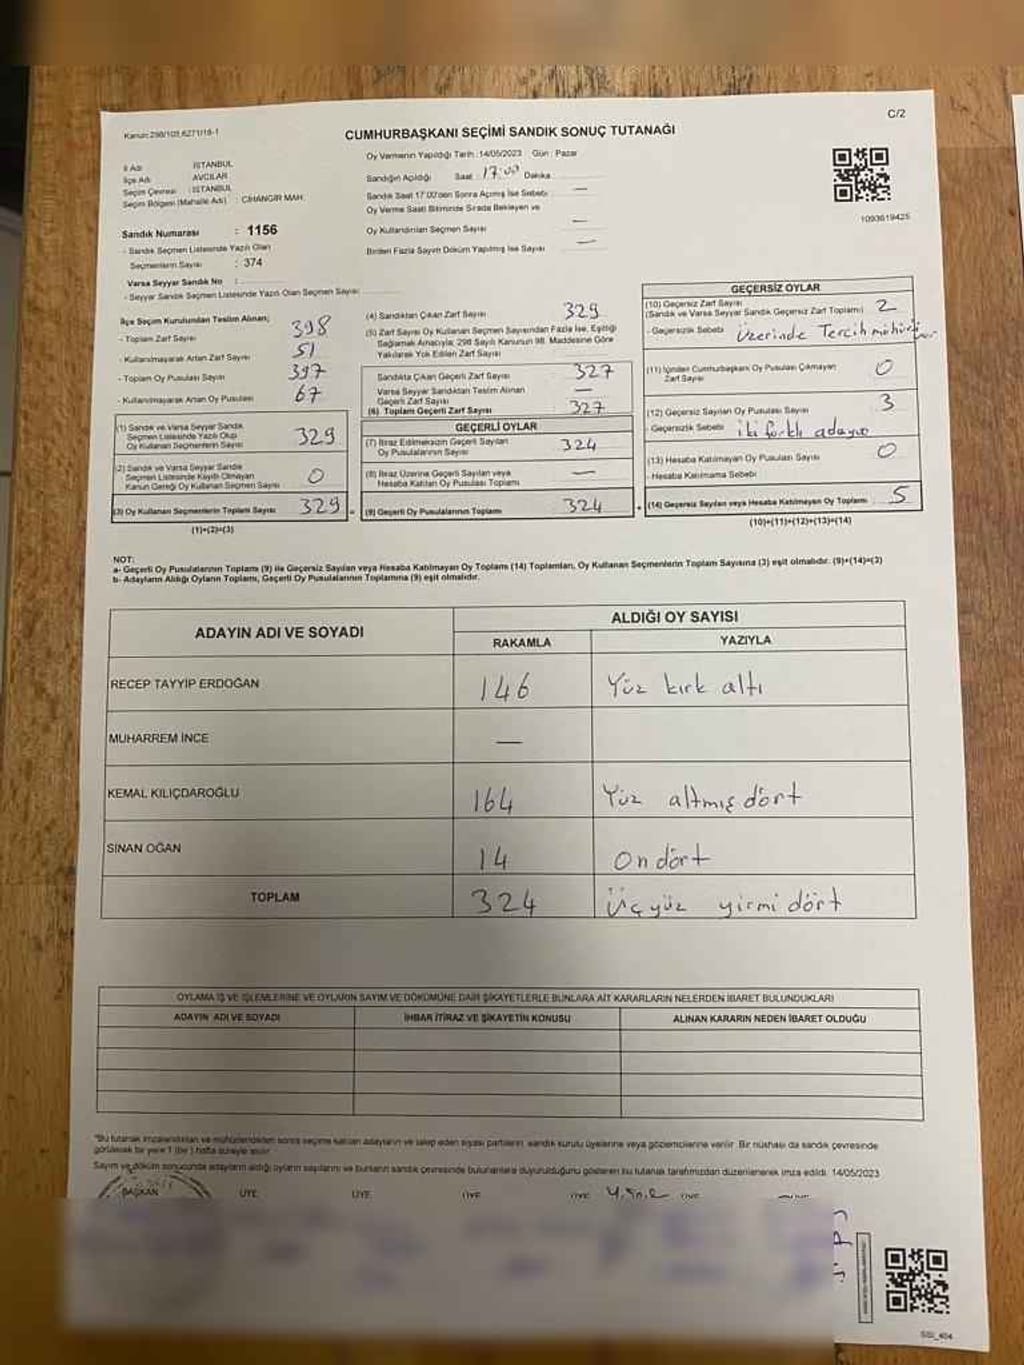 C/2
Kanun:298/105,6271/18-1
CUMHURBAŞKANI SEÇİMİ SANDIK SONUÇ TUTANAĞI
İl Adı : İSTANBUL
İlçe Adı : AVCILAR
Seçim Çevresi : İSTANBUL
Seçim Bölgesi (Mahalle Adı) : CİHANGİR MAH.
Sandık Numarası : 1156
- Sandık Seçmen Listesinde Yazılı Olan
Seçmenlerin Sayısı : 374
Varsa Seyyar Sandık No :
- Seyyar Sandık Seçmen Listesinde Yazılı Olan Seçmen Sayısı
Oy Vermenin Yapıldığı Tarih :14/05/2023 Gün : Pazar
Sandığın Açıldığı Saat : 17:00 Dakika
Sandık Saat 17:00'den Sonra Açılmış İse Sebebi —
Oy Verme Saati Bitiminde Sırada Bekleyen ve
Oy Kullandırılan Seçmen Sayısı —
Birden Fazla Sayım Döküm Yapılmış İse Sayısı —
1093619425
İlçe Seçim Kurulundan Teslim Alınan;
- Toplam Zarf Sayısı 398
- Kullanılmayarak Artan Zarf Sayısı 51
- Toplam Oy Pusulası Sayısı 397
- Kullanılmayarak Artan Oy Pusulası 67
(1) Sandık ve Varsa Seyyar Sandık
Seçmen Listesinde Yazılı Olup
Oy Kullanan Seçmenlerin Sayısı 329
(2) Sandık ve Varsa Seyyar Sandık
Seçmen Listesinde Kayıtlı Olmayan
Kanun Gereği Oy Kullanan Seçmen Sayısı 0
(3) Oy Kullanan Seçmenlerin Toplam Sayısı 329
(1)+(2)=(3)
(4) Sandıktan Çıkan Zarf Sayısı 329
(5) Zarf Sayısı Oy Kullanan Seçmen Sayısından Fazla İse, Eşitliği
Sağlamak Amacıyla; 298 Sayılı Kanunun 98. Maddesine Göre
Yakılarak Yok Edilen Zarf Sayısı
Sandıkta Çıkan Geçerli Zarf Sayısı 327
Varsa Seyyar Sandıktan Teslim Alınan
Geçerli Zarf Sayısı —
(6) Toplam Geçerli Zarf Sayısı 327
GEÇERLİ OYLAR
(7) İtiraz Edilmeksizin Geçerli Sayılan
Oy Pusulalarının Sayısı 324
(8) İtiraz Üzerine Geçerli Sayılan veya
Hesaba Katılan Oy Pusulası Toplamı —
(9) Geçerli Oy Pusulalarının Toplamı 324
GEÇERSİZ OYLAR
(10) Geçersiz Zarf Sayısı
(Sandık ve Varsa Seyyar Sandık Geçersiz Zarf Toplamı) 2
- Geçersizlik Sebebi Üzerinde Tercih mührü var.
(11) İçinden Cumhurbaşkanı Oy Pusulası Çıkmayan
Zarf Sayısı 0
(12) Geçersiz Sayılan Oy Pusulası Sayısı 3
- Geçersizlik Sebebi iki farklı adaya
(13) Hesaba Katılmayan Oy Pusulası Sayısı 0
- Hesaba Katılmama Sebebi
(14) Geçersiz Sayılan veya Hesaba Katılmayan Oy Toplamı 5
(10)+(11)+(12)+(13)=(14)
NOT:
a- Geçerli Oy Pusulalarının Toplamı (9) ile Geçersiz Sayılan veya Hesaba Katılmayan Oy Toplamı (14) Toplamları, Oy Kullanan Seçmenlerin Toplam Sayısına (3) eşit olmalıdır. (9)+(14)=(3)
b- Adayların Aldığı Oyların Toplamı, Geçerli Oy Pusulalarının Toplamına (9) eşit olmalıdır.
ADAYIN ADI VE SOYADI
ALDIĞI OY SAYISI
RAKAMLA YAZIYLA
RECEP TAYYİP ERDOĞAN 146 Yüz kırk altı
MUHARREM İNCE —
KEMAL KILIÇDAROĞLU 164 Yüz altmış dört
SİNAN OĞAN 14 On dört
TOPLAM 324 Üç yüz yirmi dört
OYLAMA İŞ VE İŞLEMLERİNE VE OYLARIN SAYIM VE DÖKÜMÜNE DAİR ŞİKAYETLERLE BUNLARA AİT KARARLARIN NELERDEN İBARET BULUNDUKLARI
ADAYIN ADI VE SOYADI İHBAR İTİRAZ VE ŞİKAYETİN KONUSU ALINAN KARARIN NEDEN İBARET OLDUĞU
*Bu tutanak imzalandıktan ve mühürlendikten sonra seçime katılan adayların ve talep eden siyasi partilerin, sandık kurulu üyelerine veya gözlemcilerine verilir. Bir nüshası da sandık çevresinde
görülecek bir yere 1 (bir) hafta süreyle asılır.
Sayım ve döküm sonucunda adayların aldığı oyların sayılarını ve bunların sandık çevresinde bulunanlara duyurulduğunu gösteren bu tutanak tarafımızdan düzenlenerek imza edildi. 14/05/2023
BAŞKAN ÜYE ÜYE ÜYE ÜYE ÜYE
SSI_404